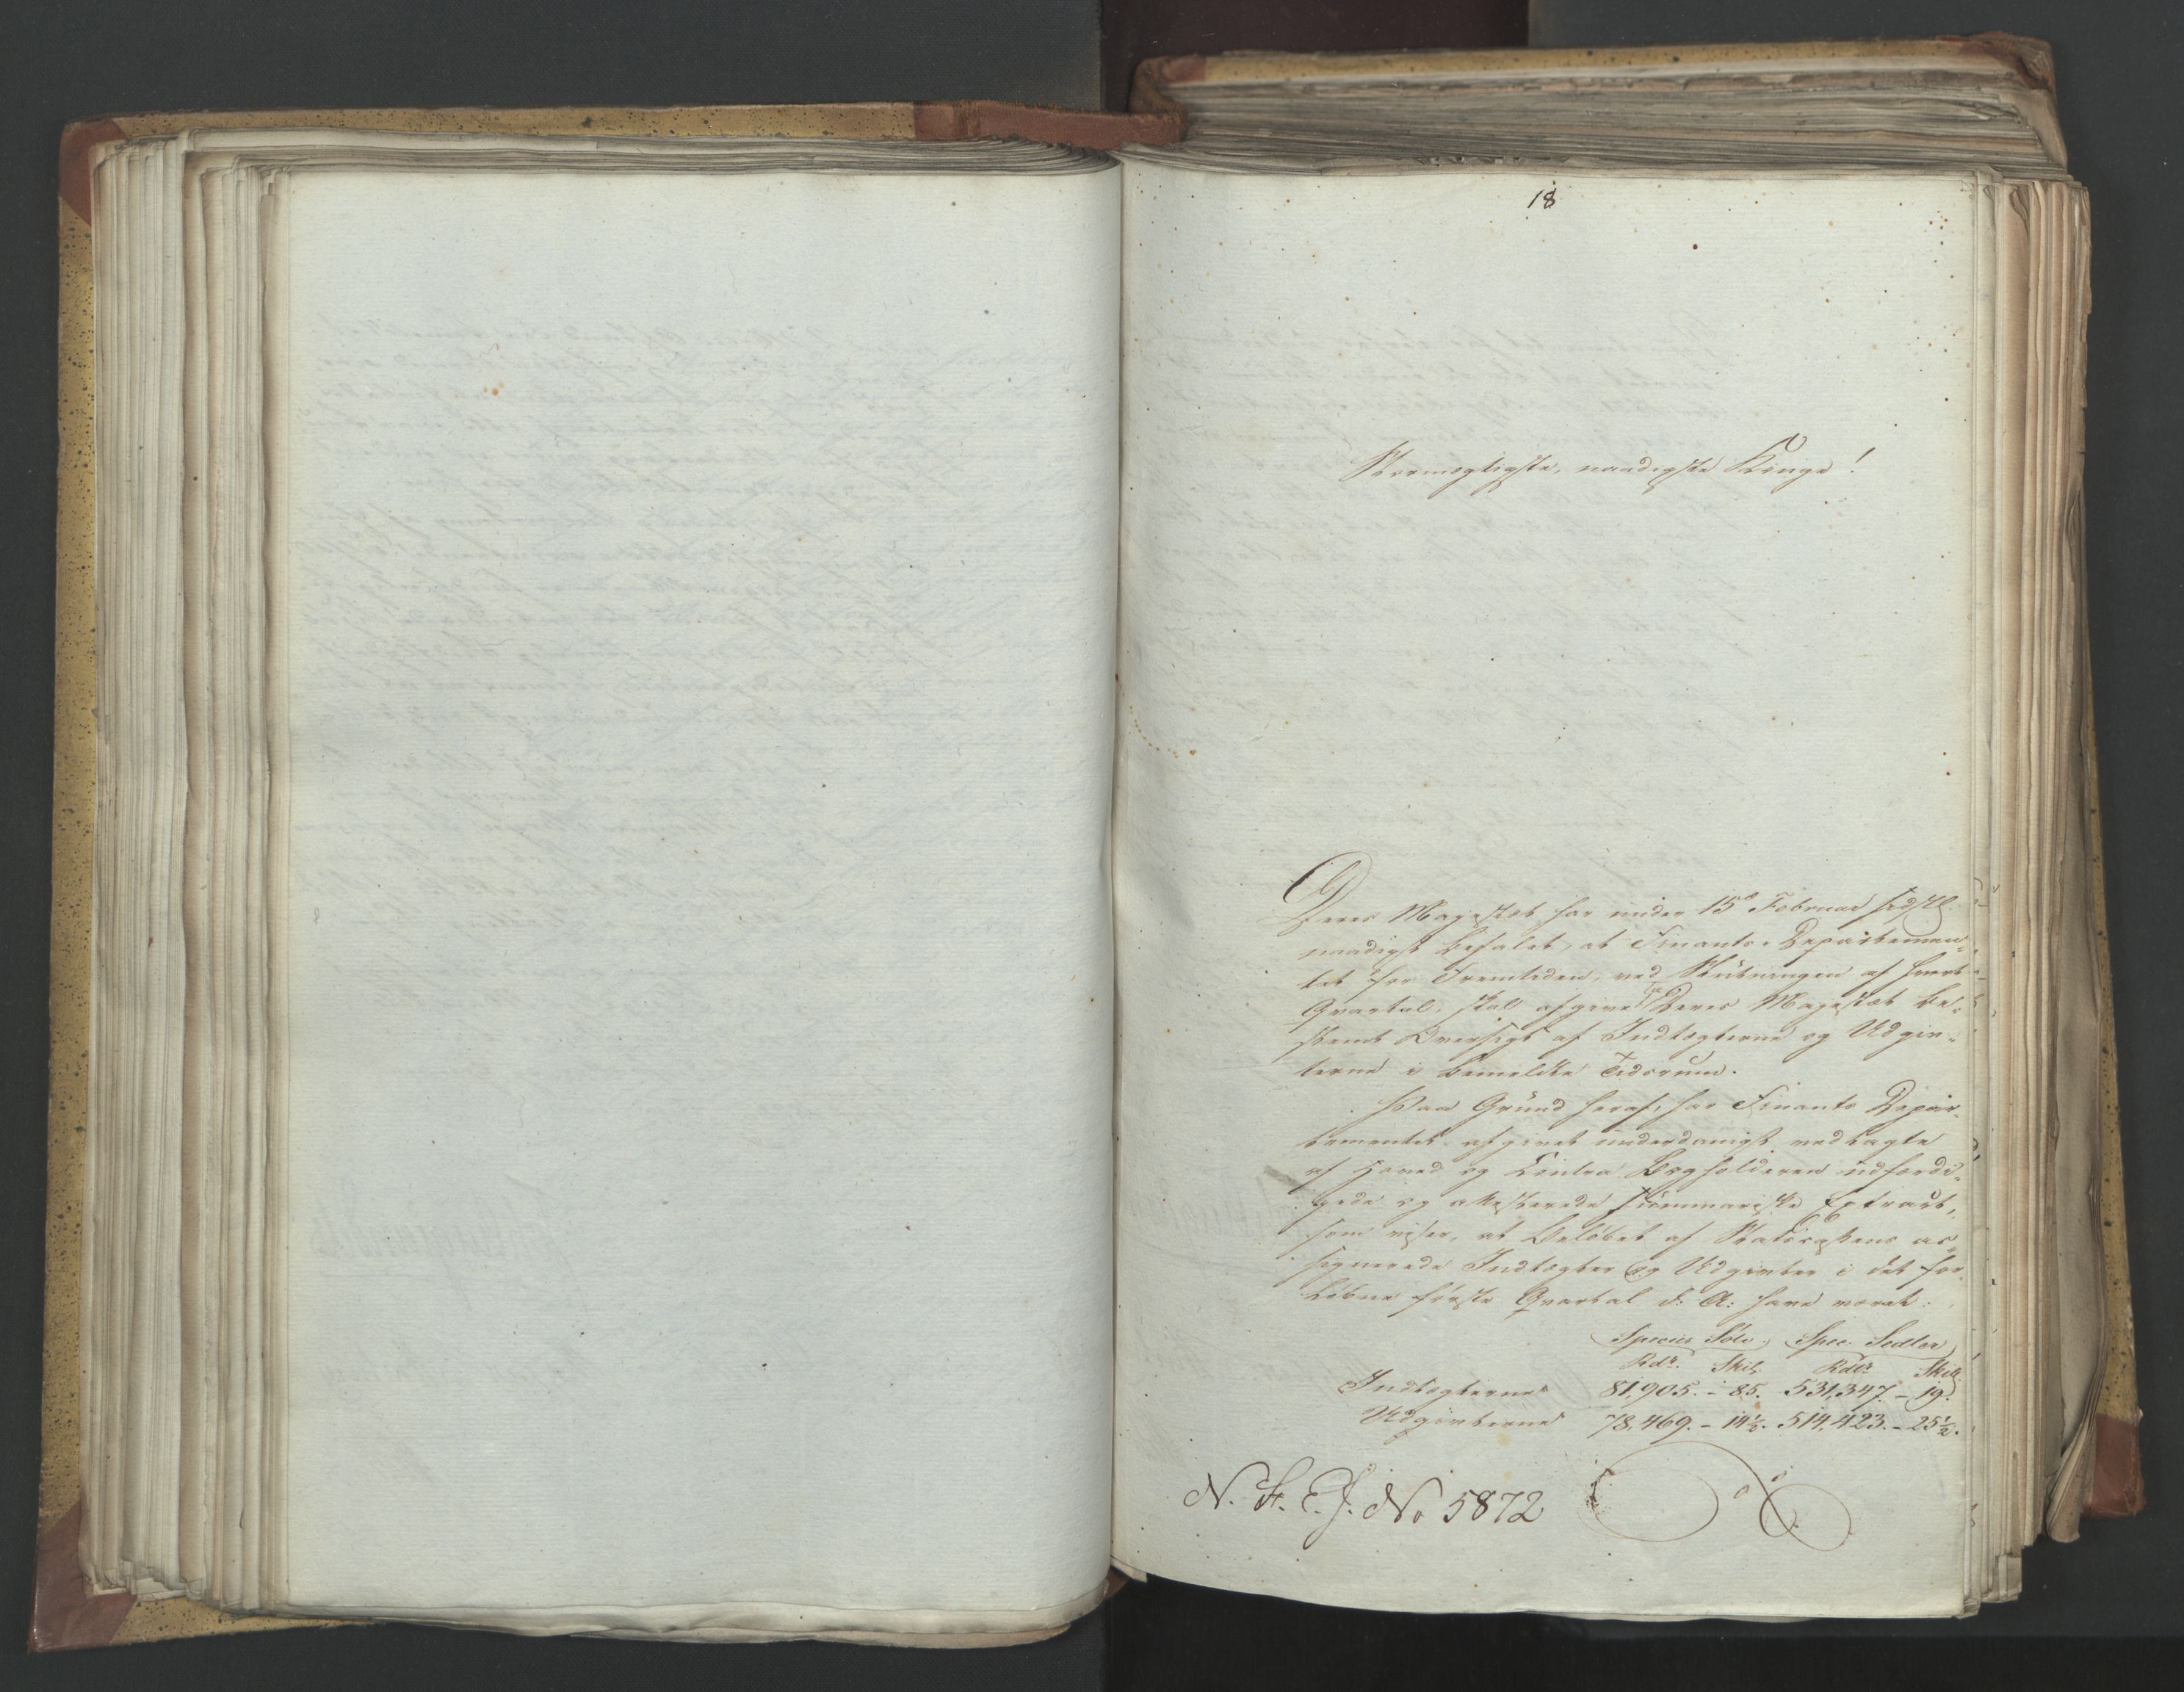 18
Stormægtigste, naadigste Konge!
Deres Majestæt har under 15de Februar sidstl.
naadigst befalet, at Finants-Departemen-
tet for Fremtiden, ved Slutningen af hvert
Qvartal, skal afgive til Deres Majestæt be-
stemt Oversigt af Indtægterne og Udgiv-
terne i bemeldte Tidsrum.
Paa Grund heraf, har Finants Depar-
tementet afgivet underdanigst vedlagte
af Hoved og Contra Bogholderen udfærdi-
gede og attesterede summariske Extract,
som viser, at Beløbet af Statscassens as-
signerede Indtægter og Udgivter i det for-
løbne første Qvartal d: A: have været:
Species Sölv. Spec. Sedler
Rdr. Skil. Rdlr Skill
Indtægterne 81,905. - 85. 531,347. - 19.
Udgivterne 78,469. - 14½. 514,423. - 25½.
N. St. E. J. No 5872